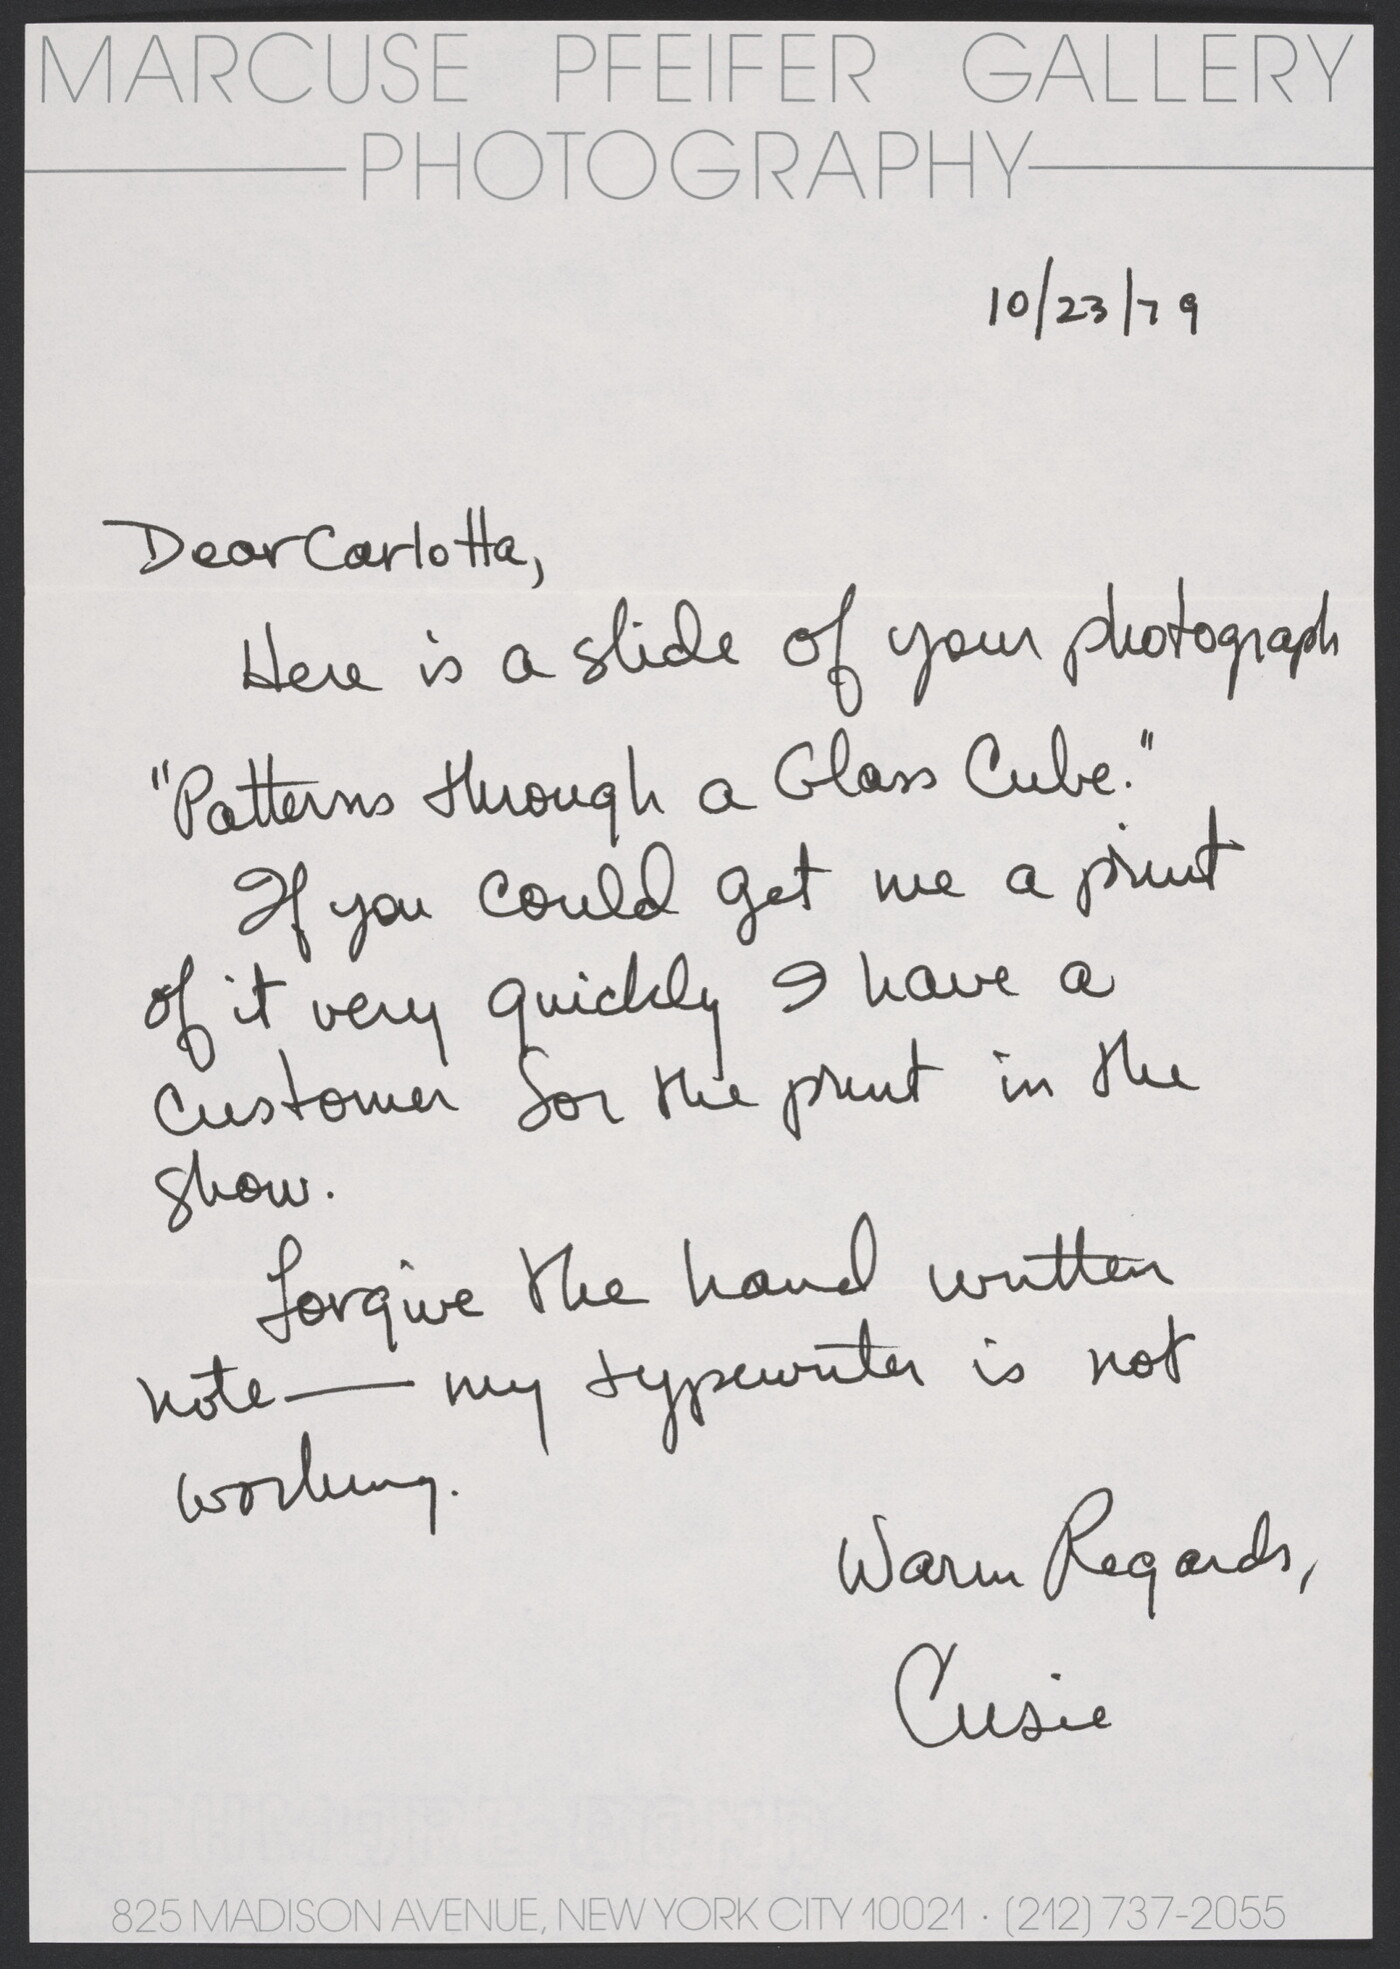 MARCUSE PFEIFER GALLERY
PHOTOGRAPHY
10/23/79
Dear Carlotta,
Here is a slide of your photograph
"Patterns through a Glass Cube."
If you could get me a print
of it very quickly I have a
customer for the print in the
show.
Forgive the hand written
note — my typewriter is not
working.
Warm Regards,
Cusie
825 MADISON AVENUE, NEW YORK CITY 10021 · (212) 737-2055